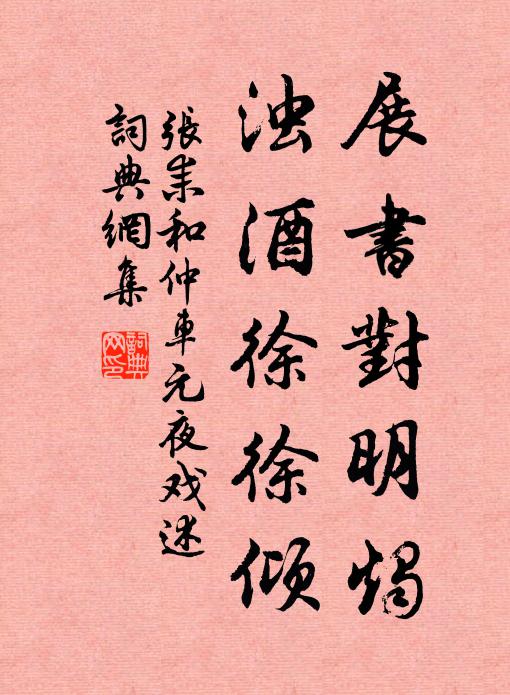 展書對明燭
浊酒徐徐傾
張耒和仲車元夜戏述
詞典網集
詞典网印